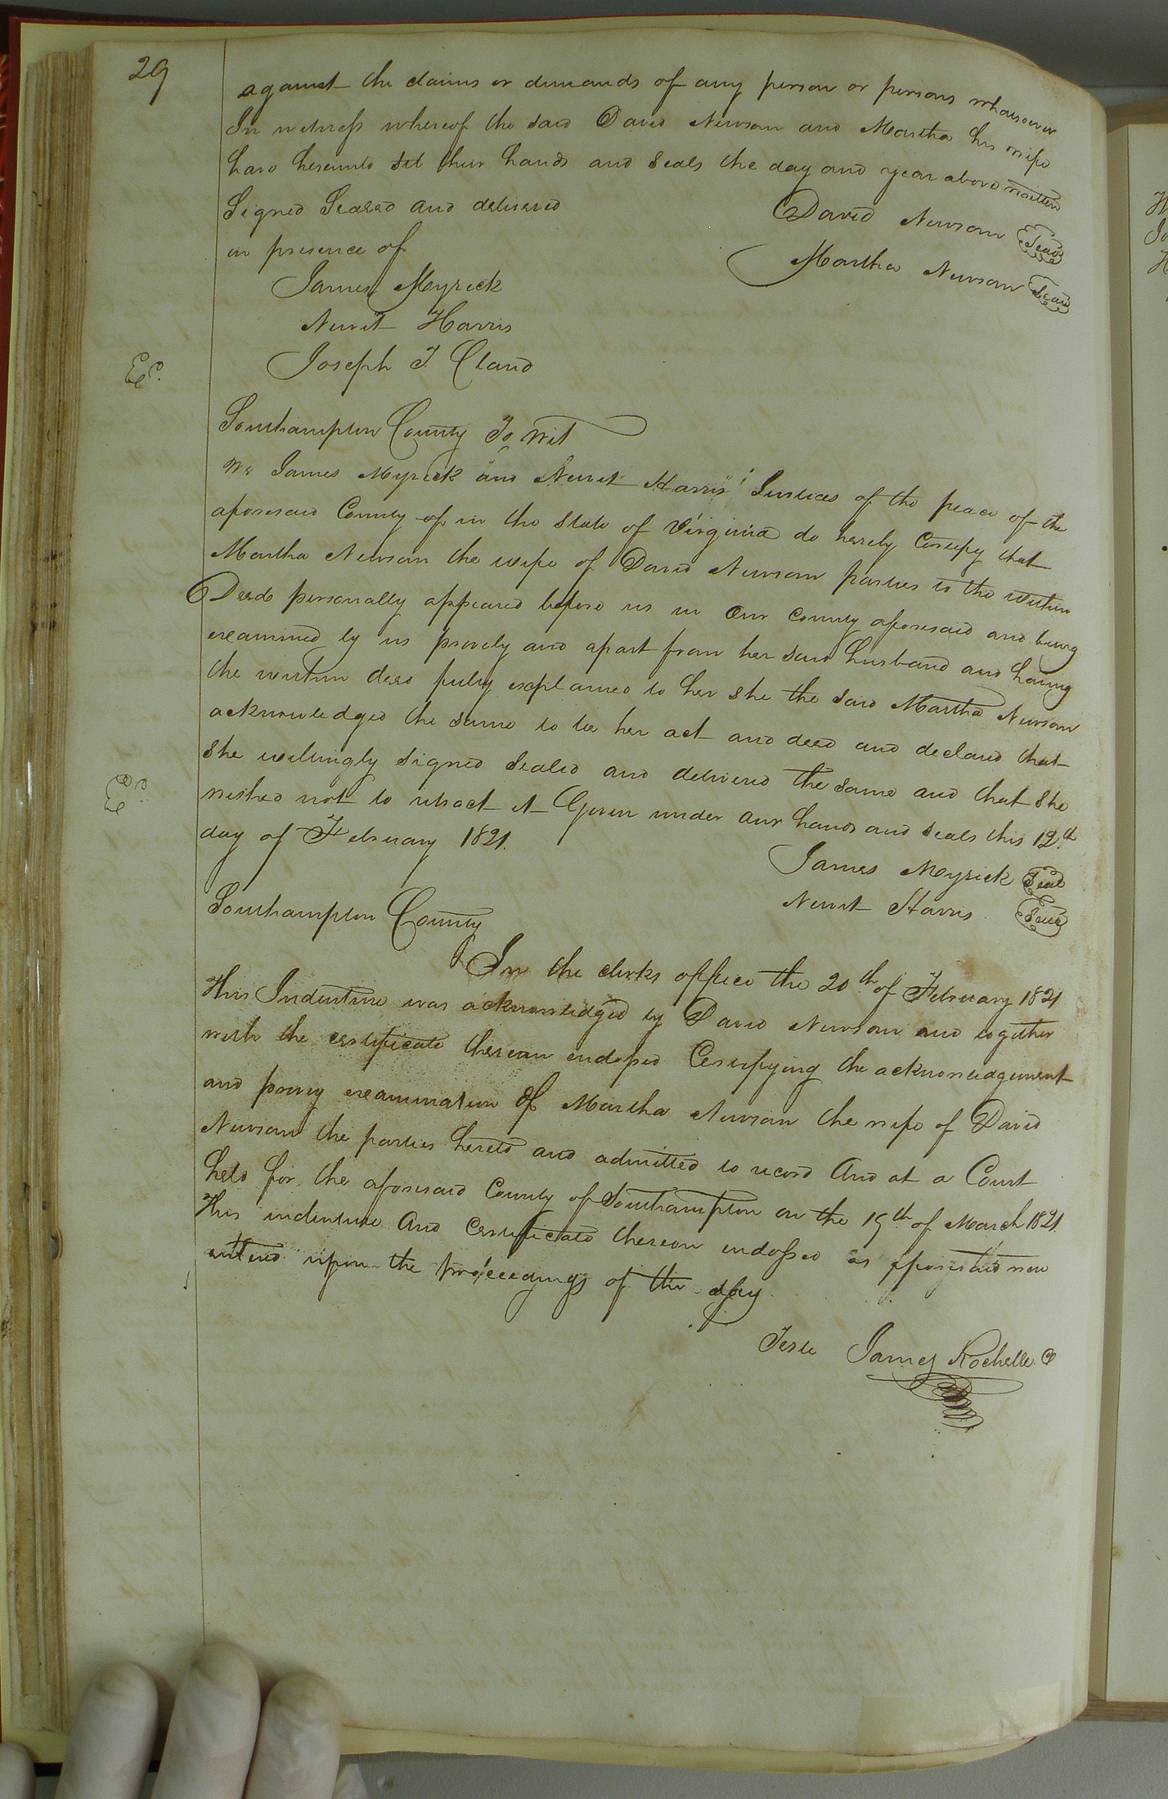 29
against the claims or demands of any person or persons whasoever
In witness whereof the said David Newsom and Martha his wife
have hereunto set their hands and seals the day and year above written
Signed Sealed and delivered
David Newsom Seal
in presence of
Martha Newsom Seal
James Myrick
Newit Harris
Joseph T Cland
Ex.
Southampton County To wit
We James Myrick and Newit Harris Justices of the peace of the
aforesaid County of in the State of Virginia do hereby Certify that
Martha Newsom the wife of David Newsom parties to the within
Deed personally appeared before us in Our County aforesaid and being
examined by us privily and apart from her said husband and having
the within deed fully explained to her she the said Martha Newsom
acknowledged the same to be her act and deed and declared that
she willingly signed sealed and delivered the same and that she
Ex.
wished not to retract it Given under our hands and seals this 12th
day of February 1821.
James Myrick Seal
Newit Harris Seal
Southampton County
In the clerks office the 20th of February 1821
This Indenture was acknowledged by David Newsom and together
with the certificate thereon endorsed Certifying the acknowledgement
and privy examination of Martha Newsom the wife of David
Newsom the parties hereto and admitted to record And at a Court
held for the aforesaid County of Southampton on the 19th of March 1821
This indenture And Certificate thereon endossed as aforesaid were
entered upon the proceedings of the day
Teste James Rochelle C